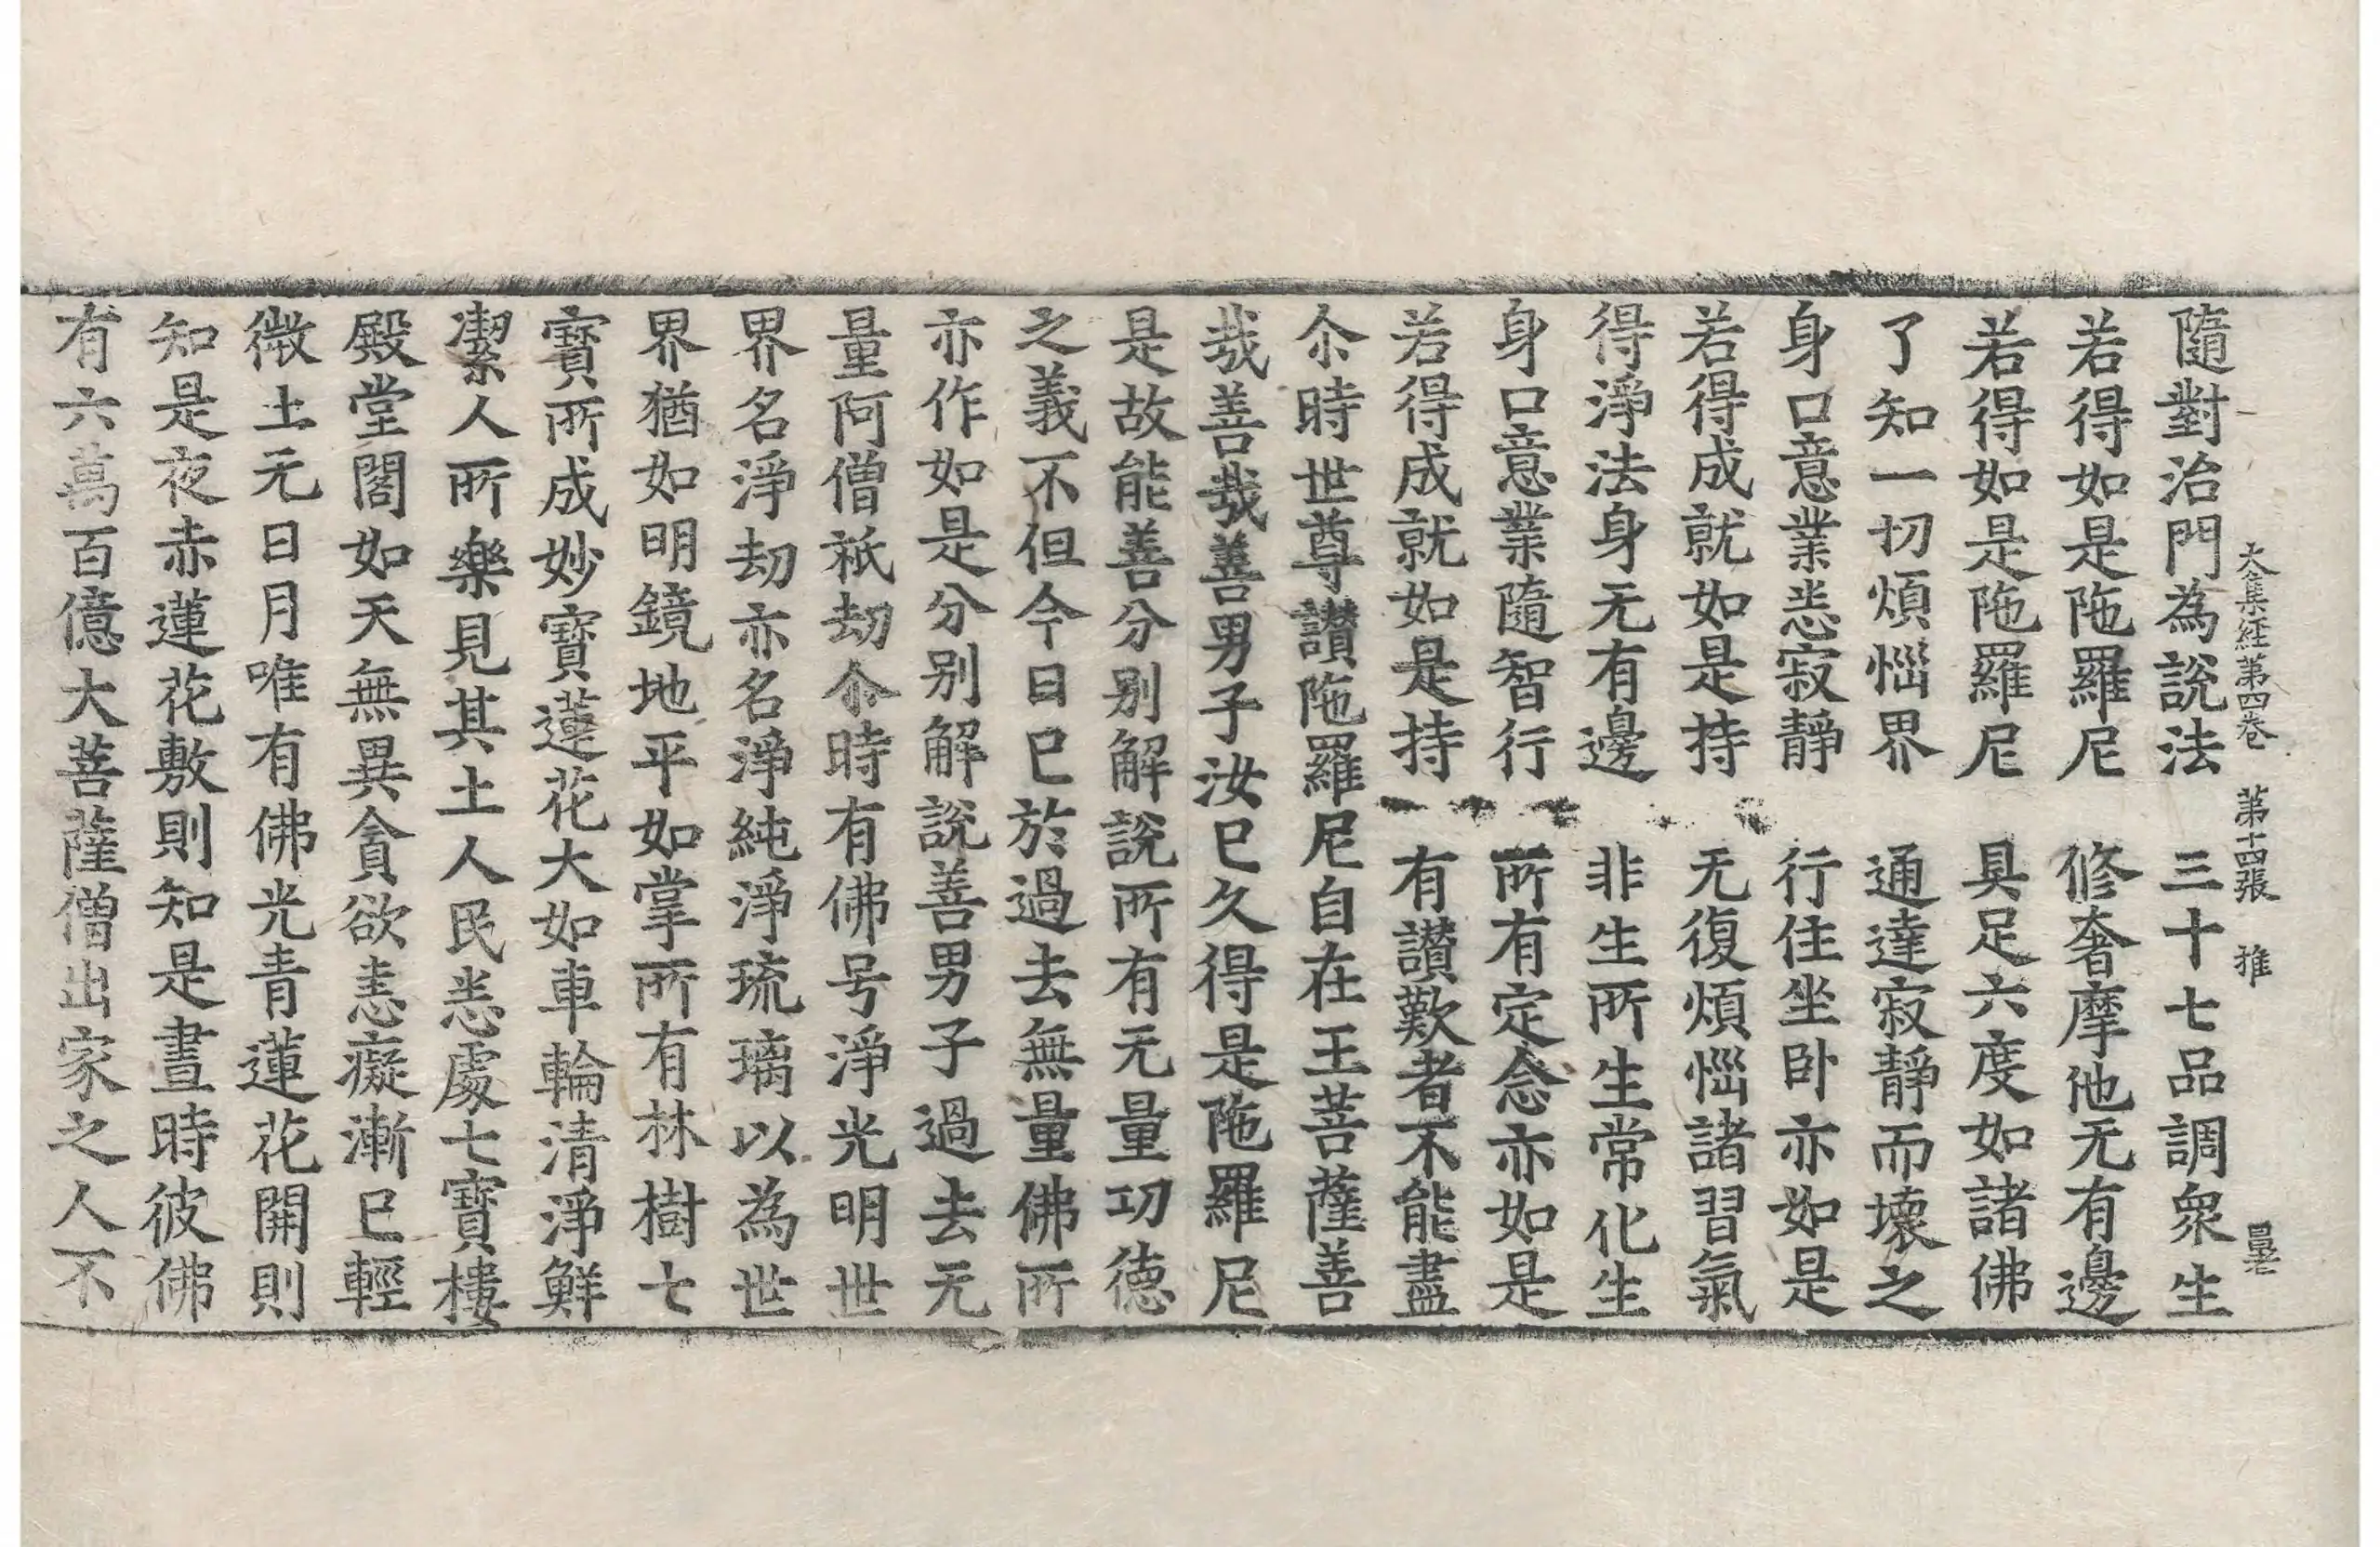 大集經第四卷 第十四張 推
隨對治門為說法 三十七品調衆生
若得如是陁羅尼 修奢摩他无有邊
若得如是陁羅尼 具足六度如諸佛
了知一切煩惱界 通達寂靜而壞之
身口意業悉寂靜 行住坐卧亦如是
若得成就如是持 无復煩惱諸習氣
得淨法身无有邊 非生所生常化生
身口意業隨智行 所有定念亦如是
若得成就如是持 有讃歎者不能盡
尒時世尊讃陁羅尼自在王菩薩善
哉善哉善男子汝已久得是陁羅尼
是故能善分別解說所有无量功德
之義不但今日已於過去無量佛所
亦作如是分別解說善男子過去无
量阿僧祇劫尒時有佛号淨光明世
界名淨劫亦名淨純淨琉璃以為世
界猶如明鏡地平如掌所有林樹七
寳所成妙寳蓮花大如車輪清淨鮮
潔人所樂見其土人民悉處七寳樓
殿堂閣如天無異貪欲恚癡漸已輕
微土无日月唯有佛光青蓮花開則
知是夜赤蓮花敷則知是晝時彼佛
有六萬百億大菩薩僧出家之人不